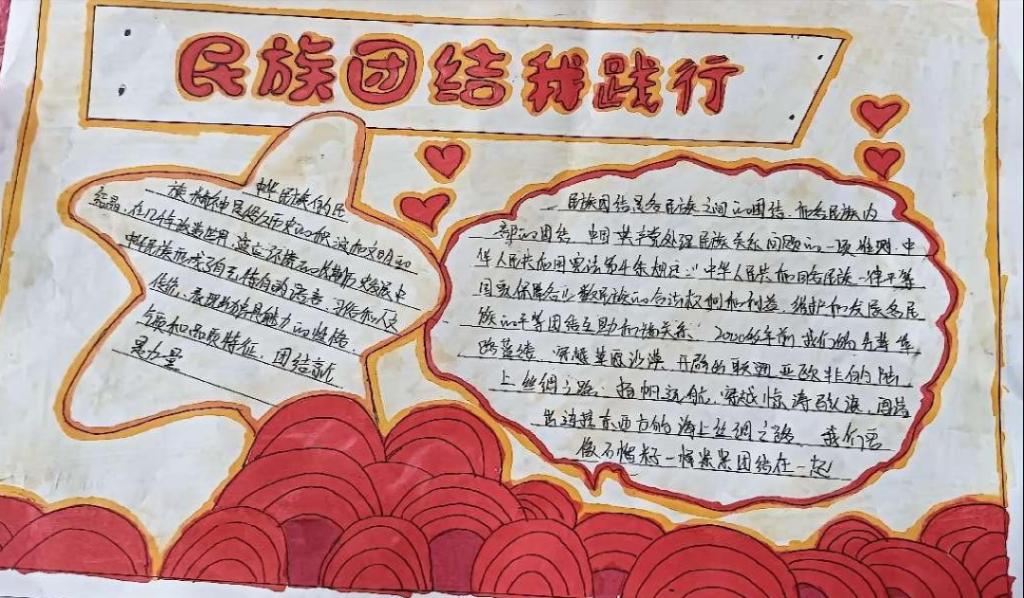 民族团结我践行
中华民族的民
族精神是经历史的积淀和文明的
结晶,在几千年
中华民族形成了自己特有的语言、习俗和人文
传统,展现出独具魅力的性格
和品质特征,团结就
是力量
民族团结是各民族之间的团结,和各民族内
部的团结,中国共产党处理民族关系问题的一项准则,中
华人民共和国宪法第4条规定:“中华人民共和国各民族一律平等
国家保障各少数民族的合法权利和利益,维护和发展各民
族的平等团结互助和谐关系.2000多年前我们的先辈筚
路蓝缕,穿越草原沙漠,开辟出联通亚欧非的陆
上丝绸之路:扬帆远航,穿越惊涛骇浪,闯荡
出连接东西方的海上丝绸之路,我们要
像石榴籽一样紧紧团结在一起!